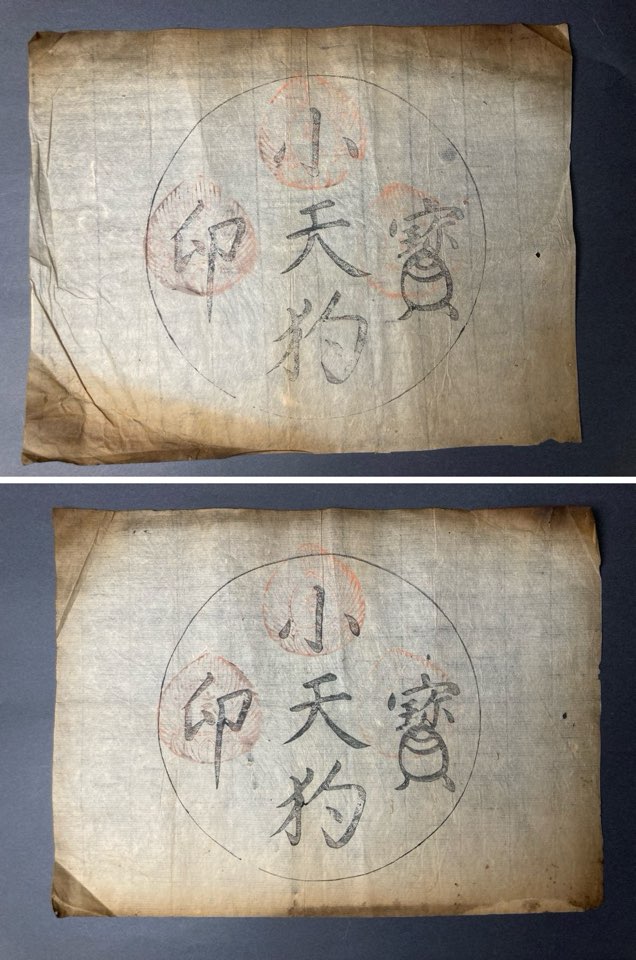 小天狗
寶
印
小天狗
寶
印